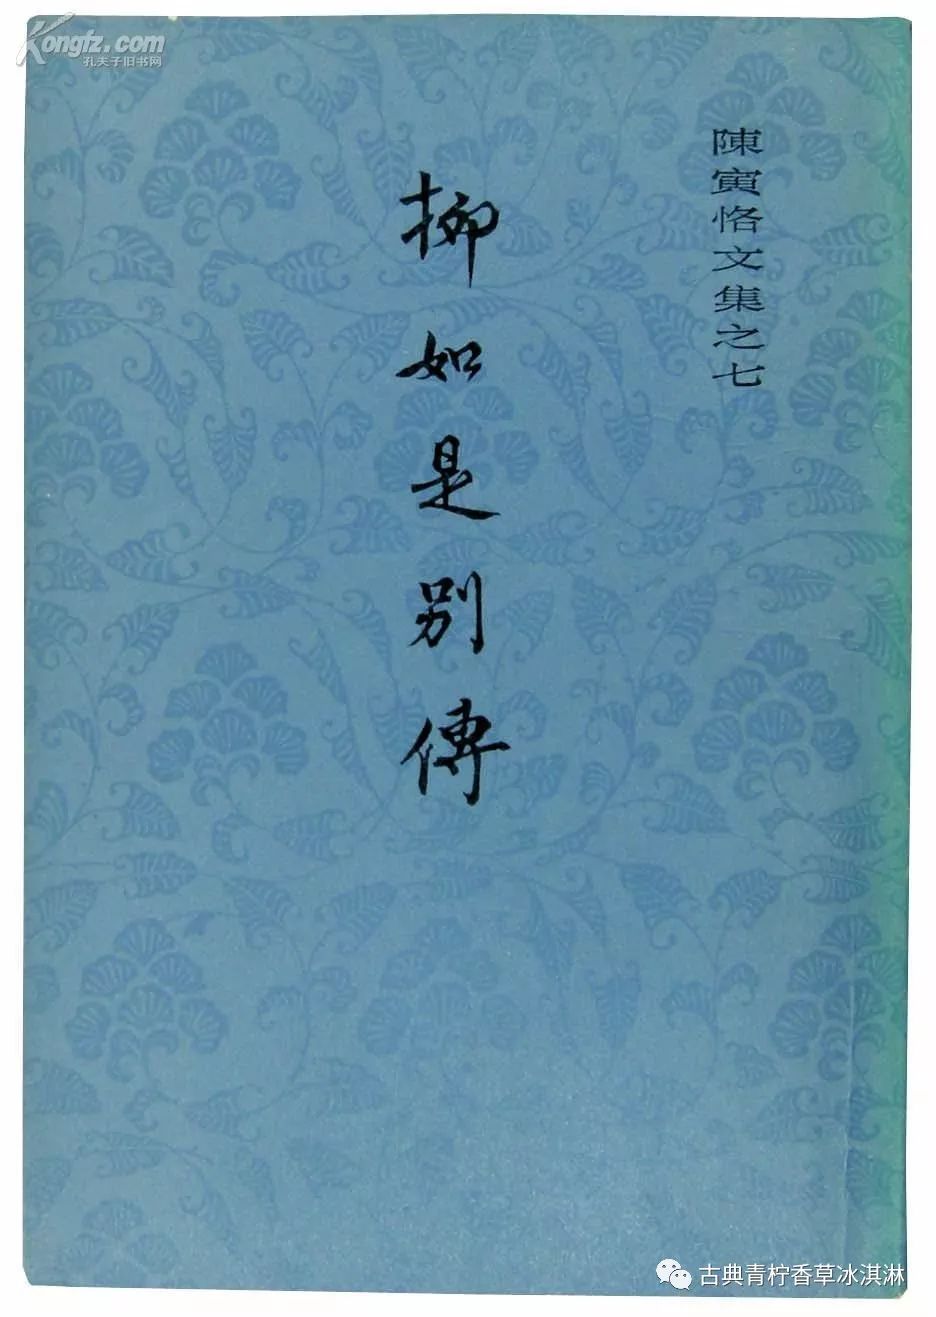 Kongfz.com
孔夫子旧书网
陳寅恪文集之七
柳如是别傳
古典青柠香草冰淇淋